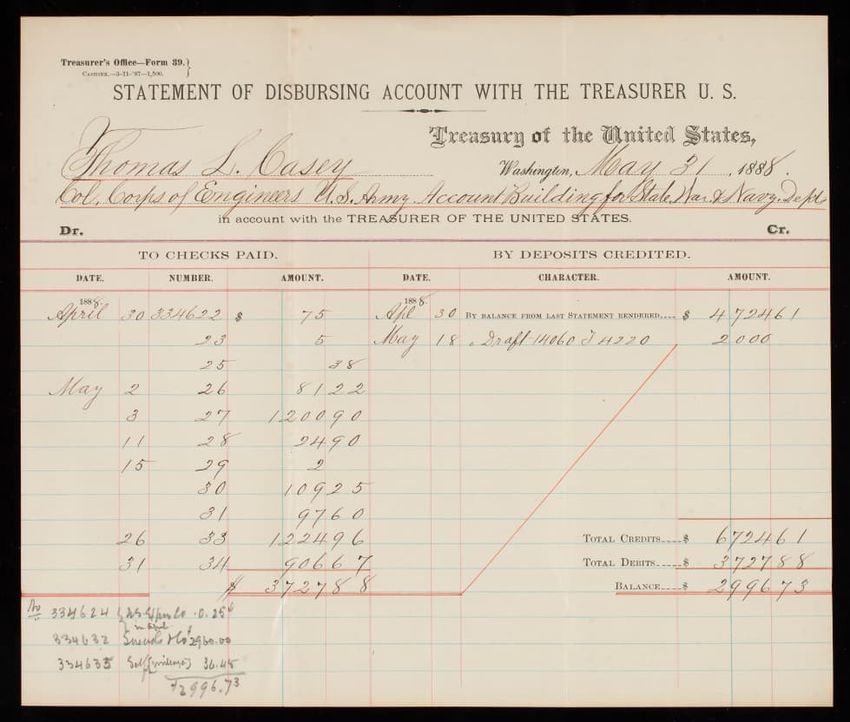 Treasurer's Office—Form 39.}
Cashier.—3-11-'87—1,500.
STATEMENT OF DISBURSING ACCOUNT WITH THE TREASURER U. S.
Treasury of the United States,
Thomas L. Casey Washington, May 31, 1888.
Col. Corps of Engineers U.S. Army Account Building for State, War & Navy Dept
in account with the TREASURER OF THE UNITED STATES.
Dr. Cr.
TO CHECKS PAID. BY DEPOSITS CREDITED.
DATE. NUMBER. AMOUNT. DATE. CHARACTER. AMOUNT.
1888. 1888.
April 30 334622 $ 75 Apl 30 By balance from last Statement rendered.... $ 472461
23 5 May 18 Draft 14060 4220 2000
25 38
May 2 26 8122
3 27 120090
11 28 2490
15 29 2
30 10925
31 9760
26 33 122496 Total Credits....$ 672461
31 34 90667 Total Debits.....$ 372788
$ 372788 Balance.....$ 299673
No 334624 0.25
334632 2960.00
334635 Self (mileage) 36.48
$2996.73